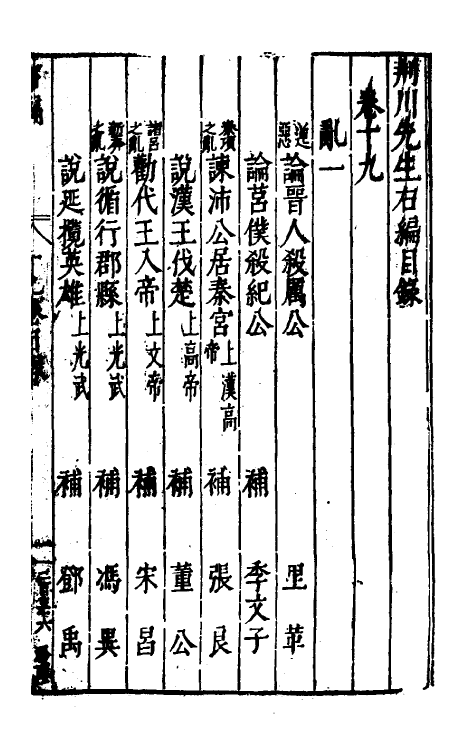 荆川先生右編目錄
卷十九
亂一
逆惡 論晉人殺厲公 里革
論莒僕殺紀公 補 季文子
秦項之亂 諫沛公居秦宮 上漢高帝 補 張良
說漢王伐楚 上高帝 補 董公
諸呂之亂 勸代王入帝 上文帝 補 宋昌
之亂 說循行郡縣 上光武 補 馮異
說延攬英雄 上光武 補 鄧禹